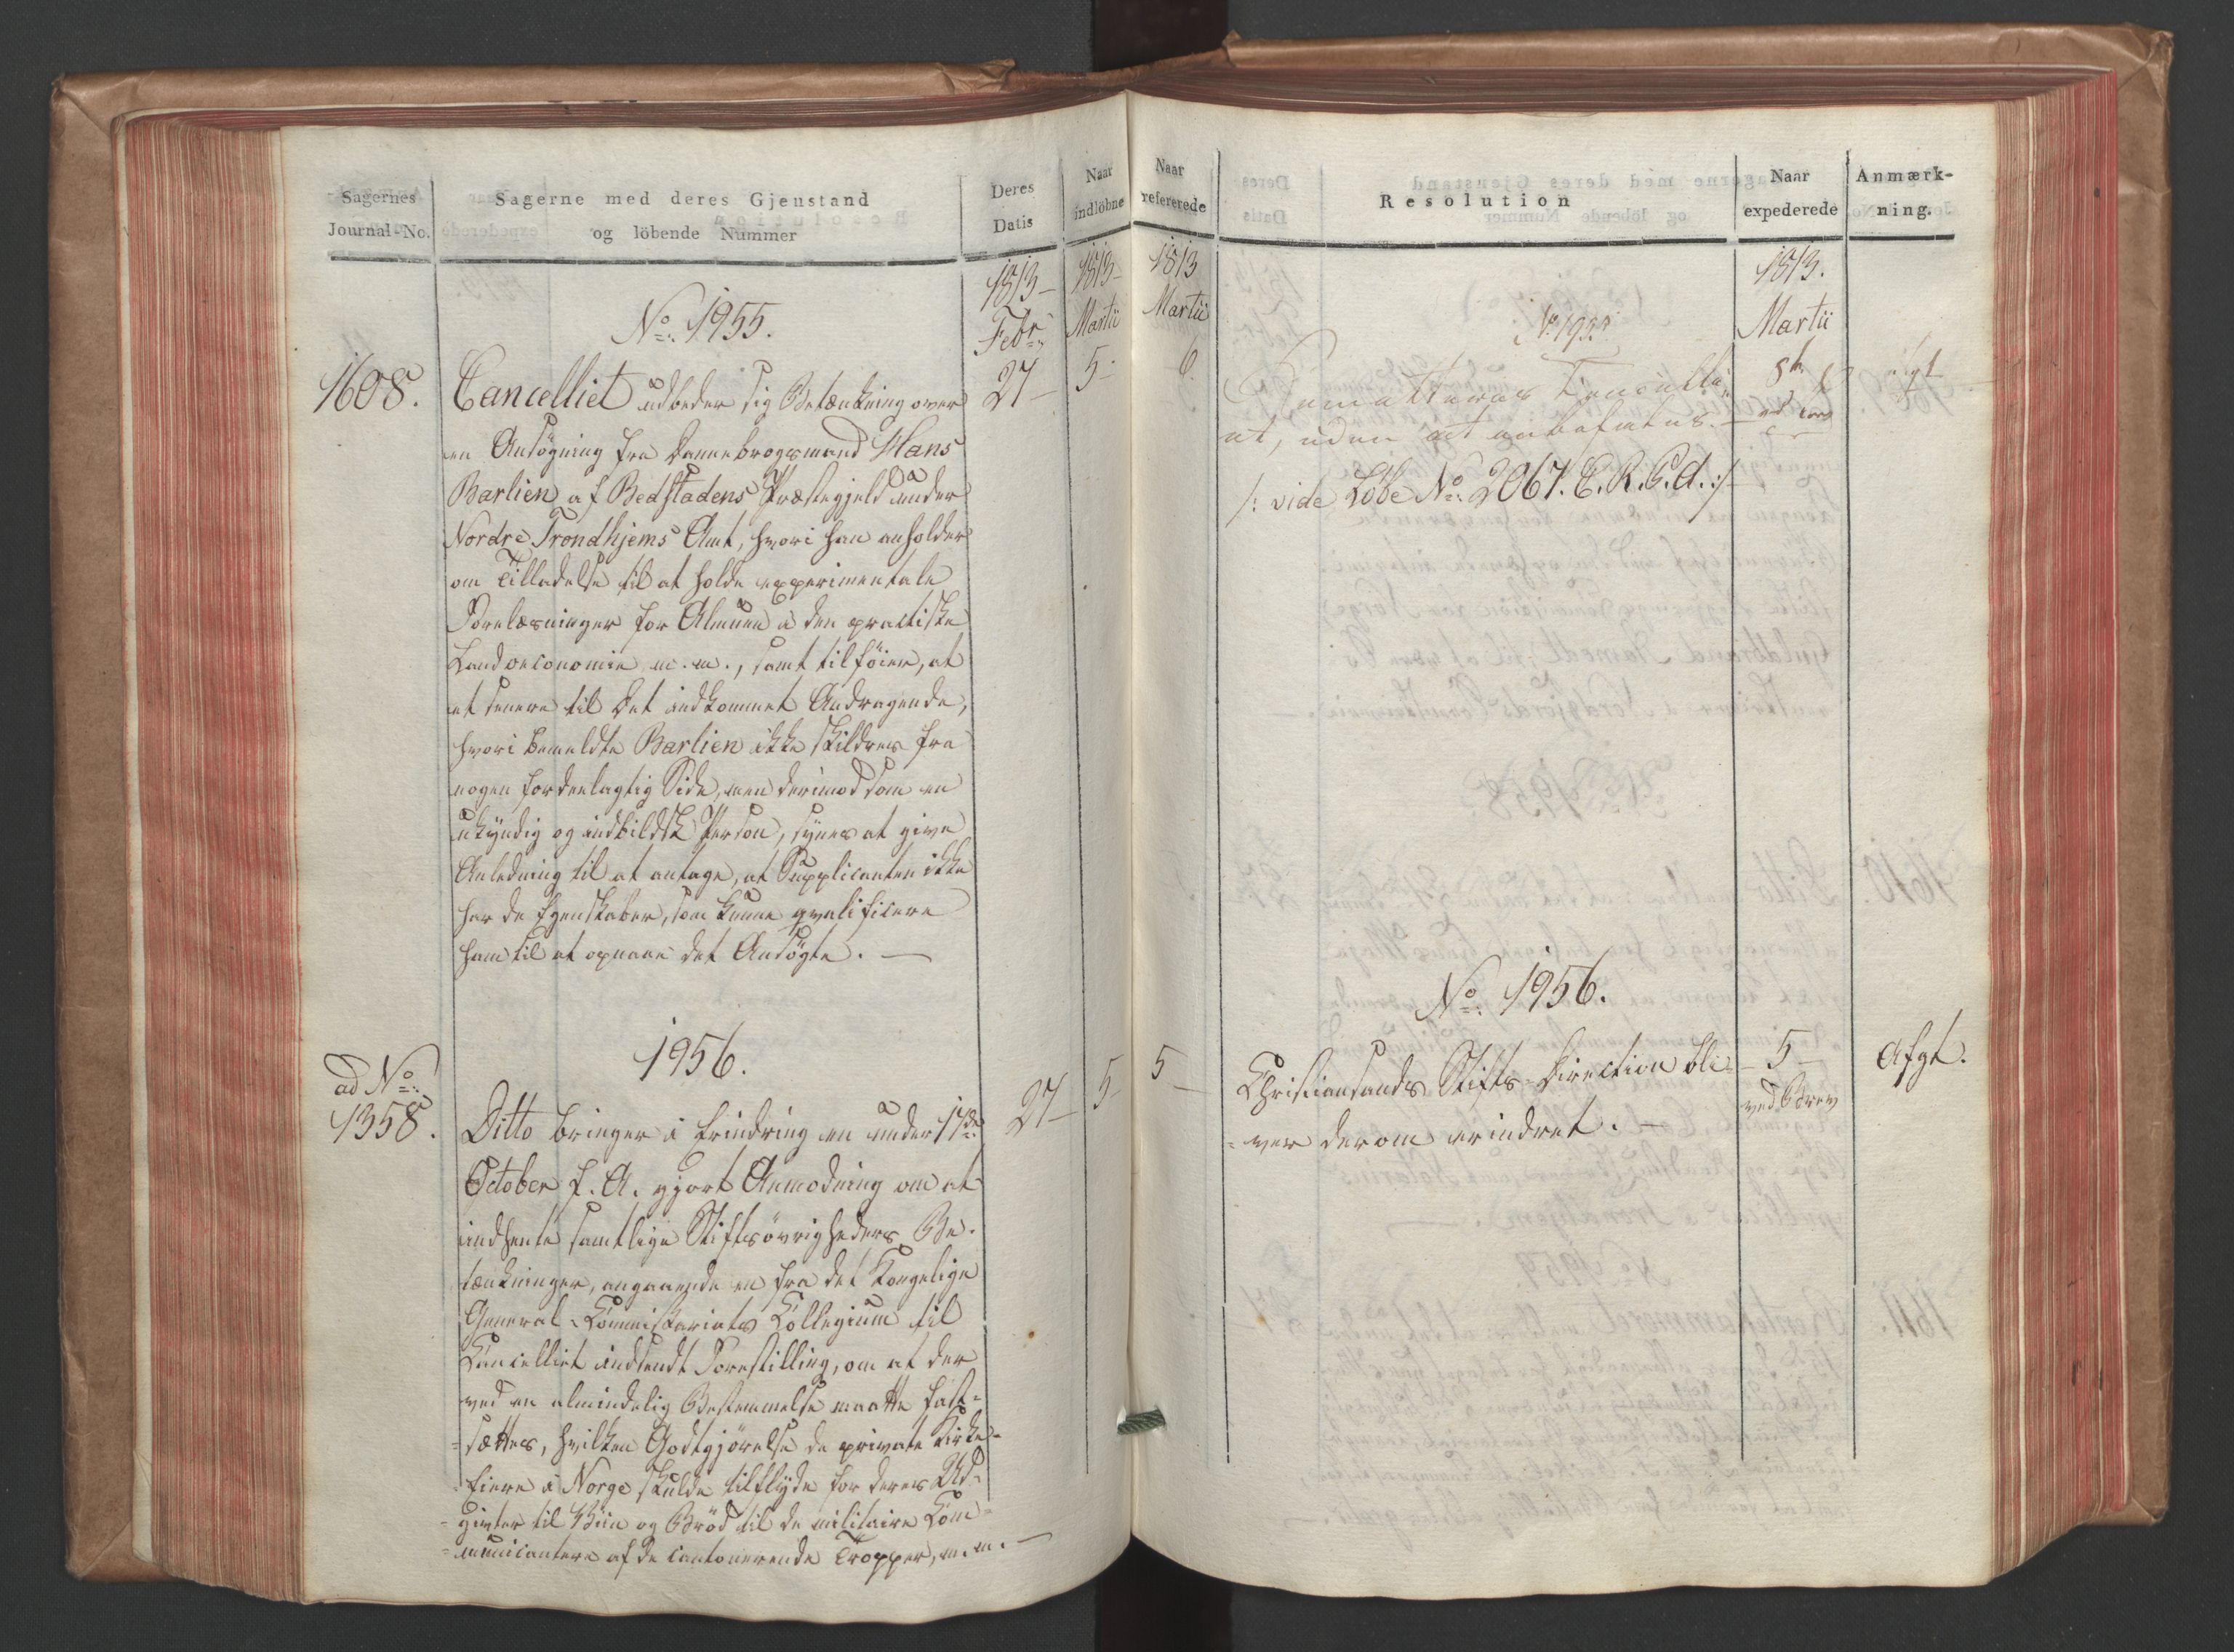 Sagernes
Journal-No.
Sagerne med deres Gjenstand
og löbende Nummer
Deres
Datis
Naar
indlöbne
1813-
Febr:
1813-
Martii
No: 1955.
1608.
27-
5-
Cancelliet udbeder sig Betænkning over
en Ansøgning fra Dannebrogsmand Hans
Barlien af Bedstadens Præstegjeld under
Nordre Trondhjems Amt, hvori han anholder
om Tilladelse til at holde experimentale
Forelæsninger for Almuen i den practiske
Landoeconomie m.m., samt tilföier, at
et senere til Det indkommet Andragende,
hvori bemeldte Barlien ikke skildres fra
nogen fordeelagtig Side, men derimod som en
ukyndig og indbildsk Person, synes at give
Anledning til at antage, at Supplicanten ikke
har de Egenskaber, som kunne qvalificere
ham til at opnaae det Ansøgte. —
1956.
ad No:
1358.
27-
5-
Ditto bringer i Erindring en under 17de
October f. A. gjort Anmodning om at
indhente samtlige Stiftsøvrigheders Be-
tænkninger, angaaende en fra det Kongelige
General-Commissariats Collegium til
Cancelliet indsendt Forestilling, om at der
ved en almindelig Bestemmelse maatte fast-
=sættes, hvilken Godtgjørelse de private Kirke-
Eiere i Norge skulde tilflyde for deres Ud-
=givter til Viin og Brød til de militaire Com-
=municantere af de cantonerende Tropper, m.m. —
Naar
refererede
Resolution
Naar
expederede
Anmærk-
ning.
1813
Martii
1813.
Martii
6.
8de
at, uden at anbefales. —
/: vide Löbe No: 2067. E.R.P.A. :/
No: 1956.
5-
Christiansands Stifts-Direction bli-
=ver derom erindret. —
5-
ved Brev
Afgt.